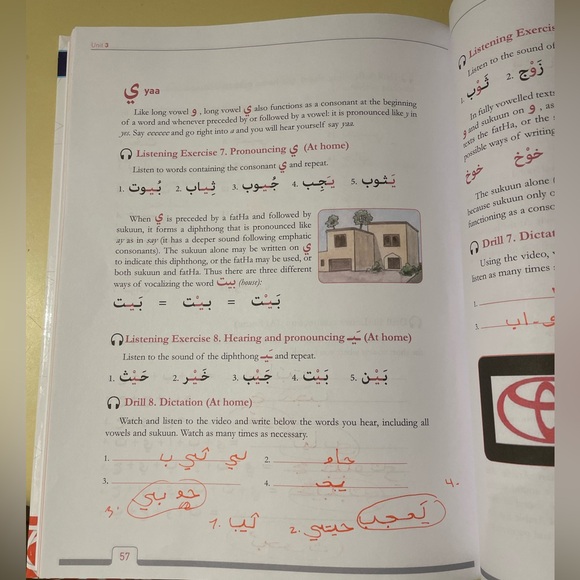 Unit 3
ي yaa
Like long vowel و , long vowel ي also functions as a consonant at the beginning
of a word and whenever preceded by or followed by a vowel: it is pronounced like y in
yes. Say eeeeee and go right into a and you will hear yourself say yaa.
Listening Exercise 7. Pronouncing ي (At home)
Listen to words containing the consonant ي and repeat.
1. بُيوت 2. ثِياب 3. جُيوب 4. يَجِب 5. يَثوب
When ي is preceded by a fatHa and followed by
sukuun, it forms a diphthong that is pronounced like
ay as in say (it has a deeper sound following emphatic
consonants). The sukuun alone may be written on ي
to indicate this diphthong, or the fatHa may be used, or
both sukuun and fatHa. Thus there are three different
ways of vocalizing the word بيت (house):
بَيْت = بيْت = بَيت
Listening Exercise 8. Hearing and pronouncing ـَيـ (At home)
Listen to the sound of the diphthong ـَيـ and repeat.
1. حَيْث 2. خَيْر 3. جَيْب 4. بَيْت 5. بَيْن
Drill 8. Dictation (At home)
Watch and listen to the video and write below the words you hear, including all
vowels and sukuun. Watch as many times as necessary.
1. 2.
3. 4.
3. 4.
1. 2.
57
Listening Exercis
Listen to the sound of
1. ثَوْب 2. زَوْج
In fully vowelled texts
و and sukuun on و, as
texts the fatHa, or the s
possible ways of writing
خوخ خَوْخ
The sukuun alone
because sukuun only
functioning as a conso
Drill 7. Dictat
Using the video,
listen as many times
1.
3.